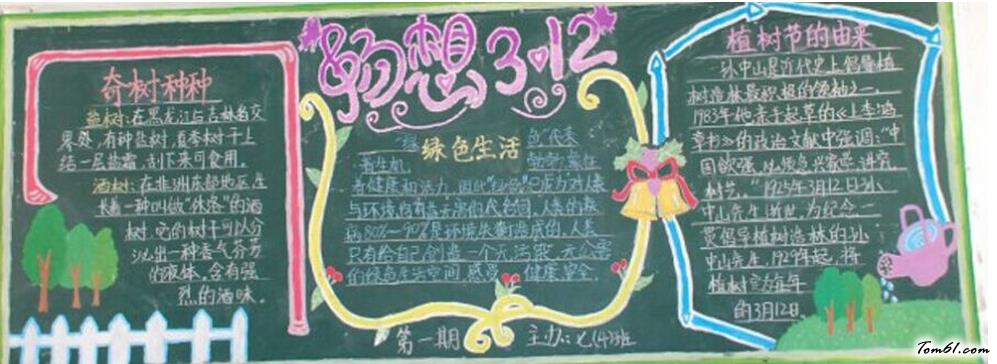 畅想3.12
奇树种种
盐树:在黑龙江与吉林省交
界处,有种盐树,夏季树干上
结一层盐霜,刮下来可食用。
酒树:在非洲东部地区,生
长着一种叫做“休洛”的酒
树,它的树干可以分
泌出一种香气芬芳
的液体,含有强
烈的酒味。
绿色生活
色”代表
着生机
着健康和活力,因此“绿色”已成为对人类
与环境均有益无害的代名词,人类的疾
病80%~90%是环境失衡造成的,人类
只有给自己创造一个无污染、无公害
的绿色生活空间,感受 健康、安全
第一期 主办:七(4)班
植树节的由来
孙中山是近代史上倡导植
树造林最积极的领袖之一
国欲强,必须急兴农学,讲究
树艺。”1925年3月12日孙
中山先生逝世,为纪念一
贯倡导植树造林的孙
中山先生,1929年起,将
植树节定为每年
的3月12日。
Tom61.com